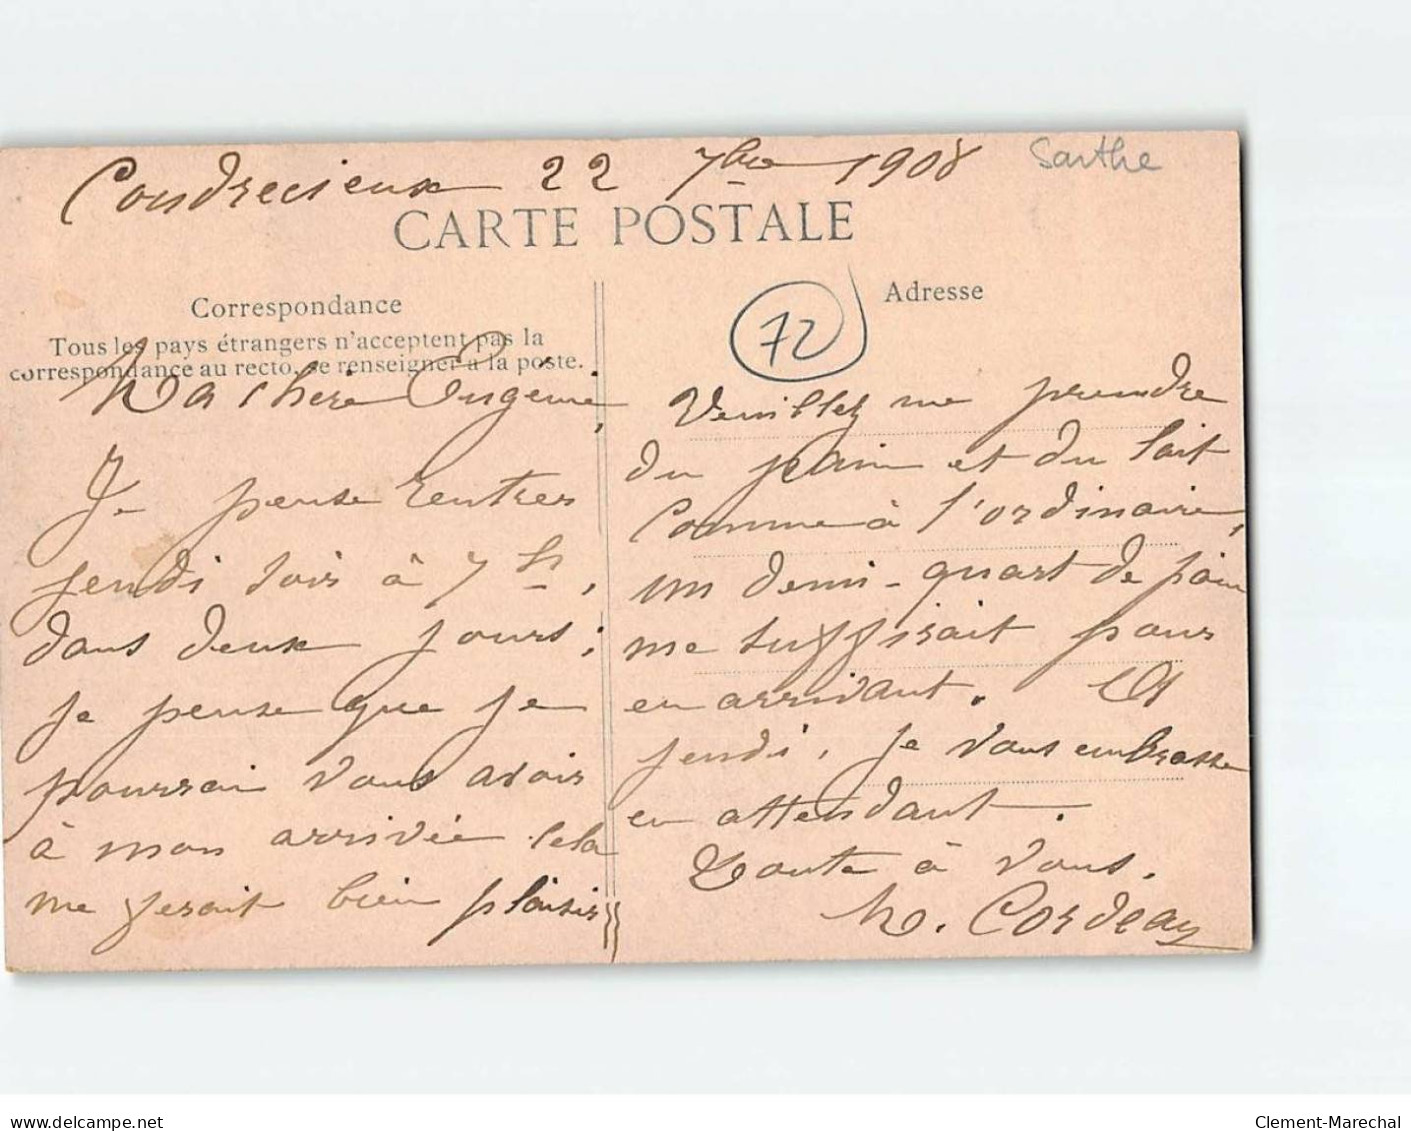 Coudrecieux 22 7bre 1908 Sarthe
CARTE POSTALE
Correspondance
Tous les pays étrangers n'acceptent pas la
correspondance au recto, se renseigner à la poste.
72
Adresse
Ma chère Eugénie,
Je pense rentrer
jeudi soir à 7 h,
dans deux jours;
je pense que je
pourrai vous avoir
à mon arrivée cela
me ferait bien plaisir
Veuillez me prendre
du pain et du lait
comme à l'ordinaire,
un demi-quart de pain
me suffirait pour
en arrivant. A
jeudi, je vous embrasse
en attendant.
Toute à vous.
M. Cordeau
www.delcampe.net
Clement-Marechal